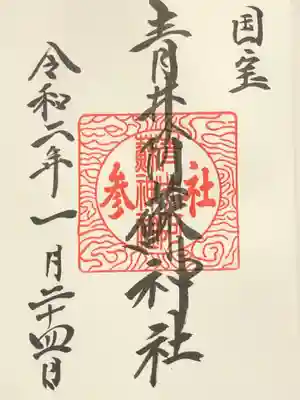 国宝
青井阿蘇神社
参社
令和六年一月二十四日